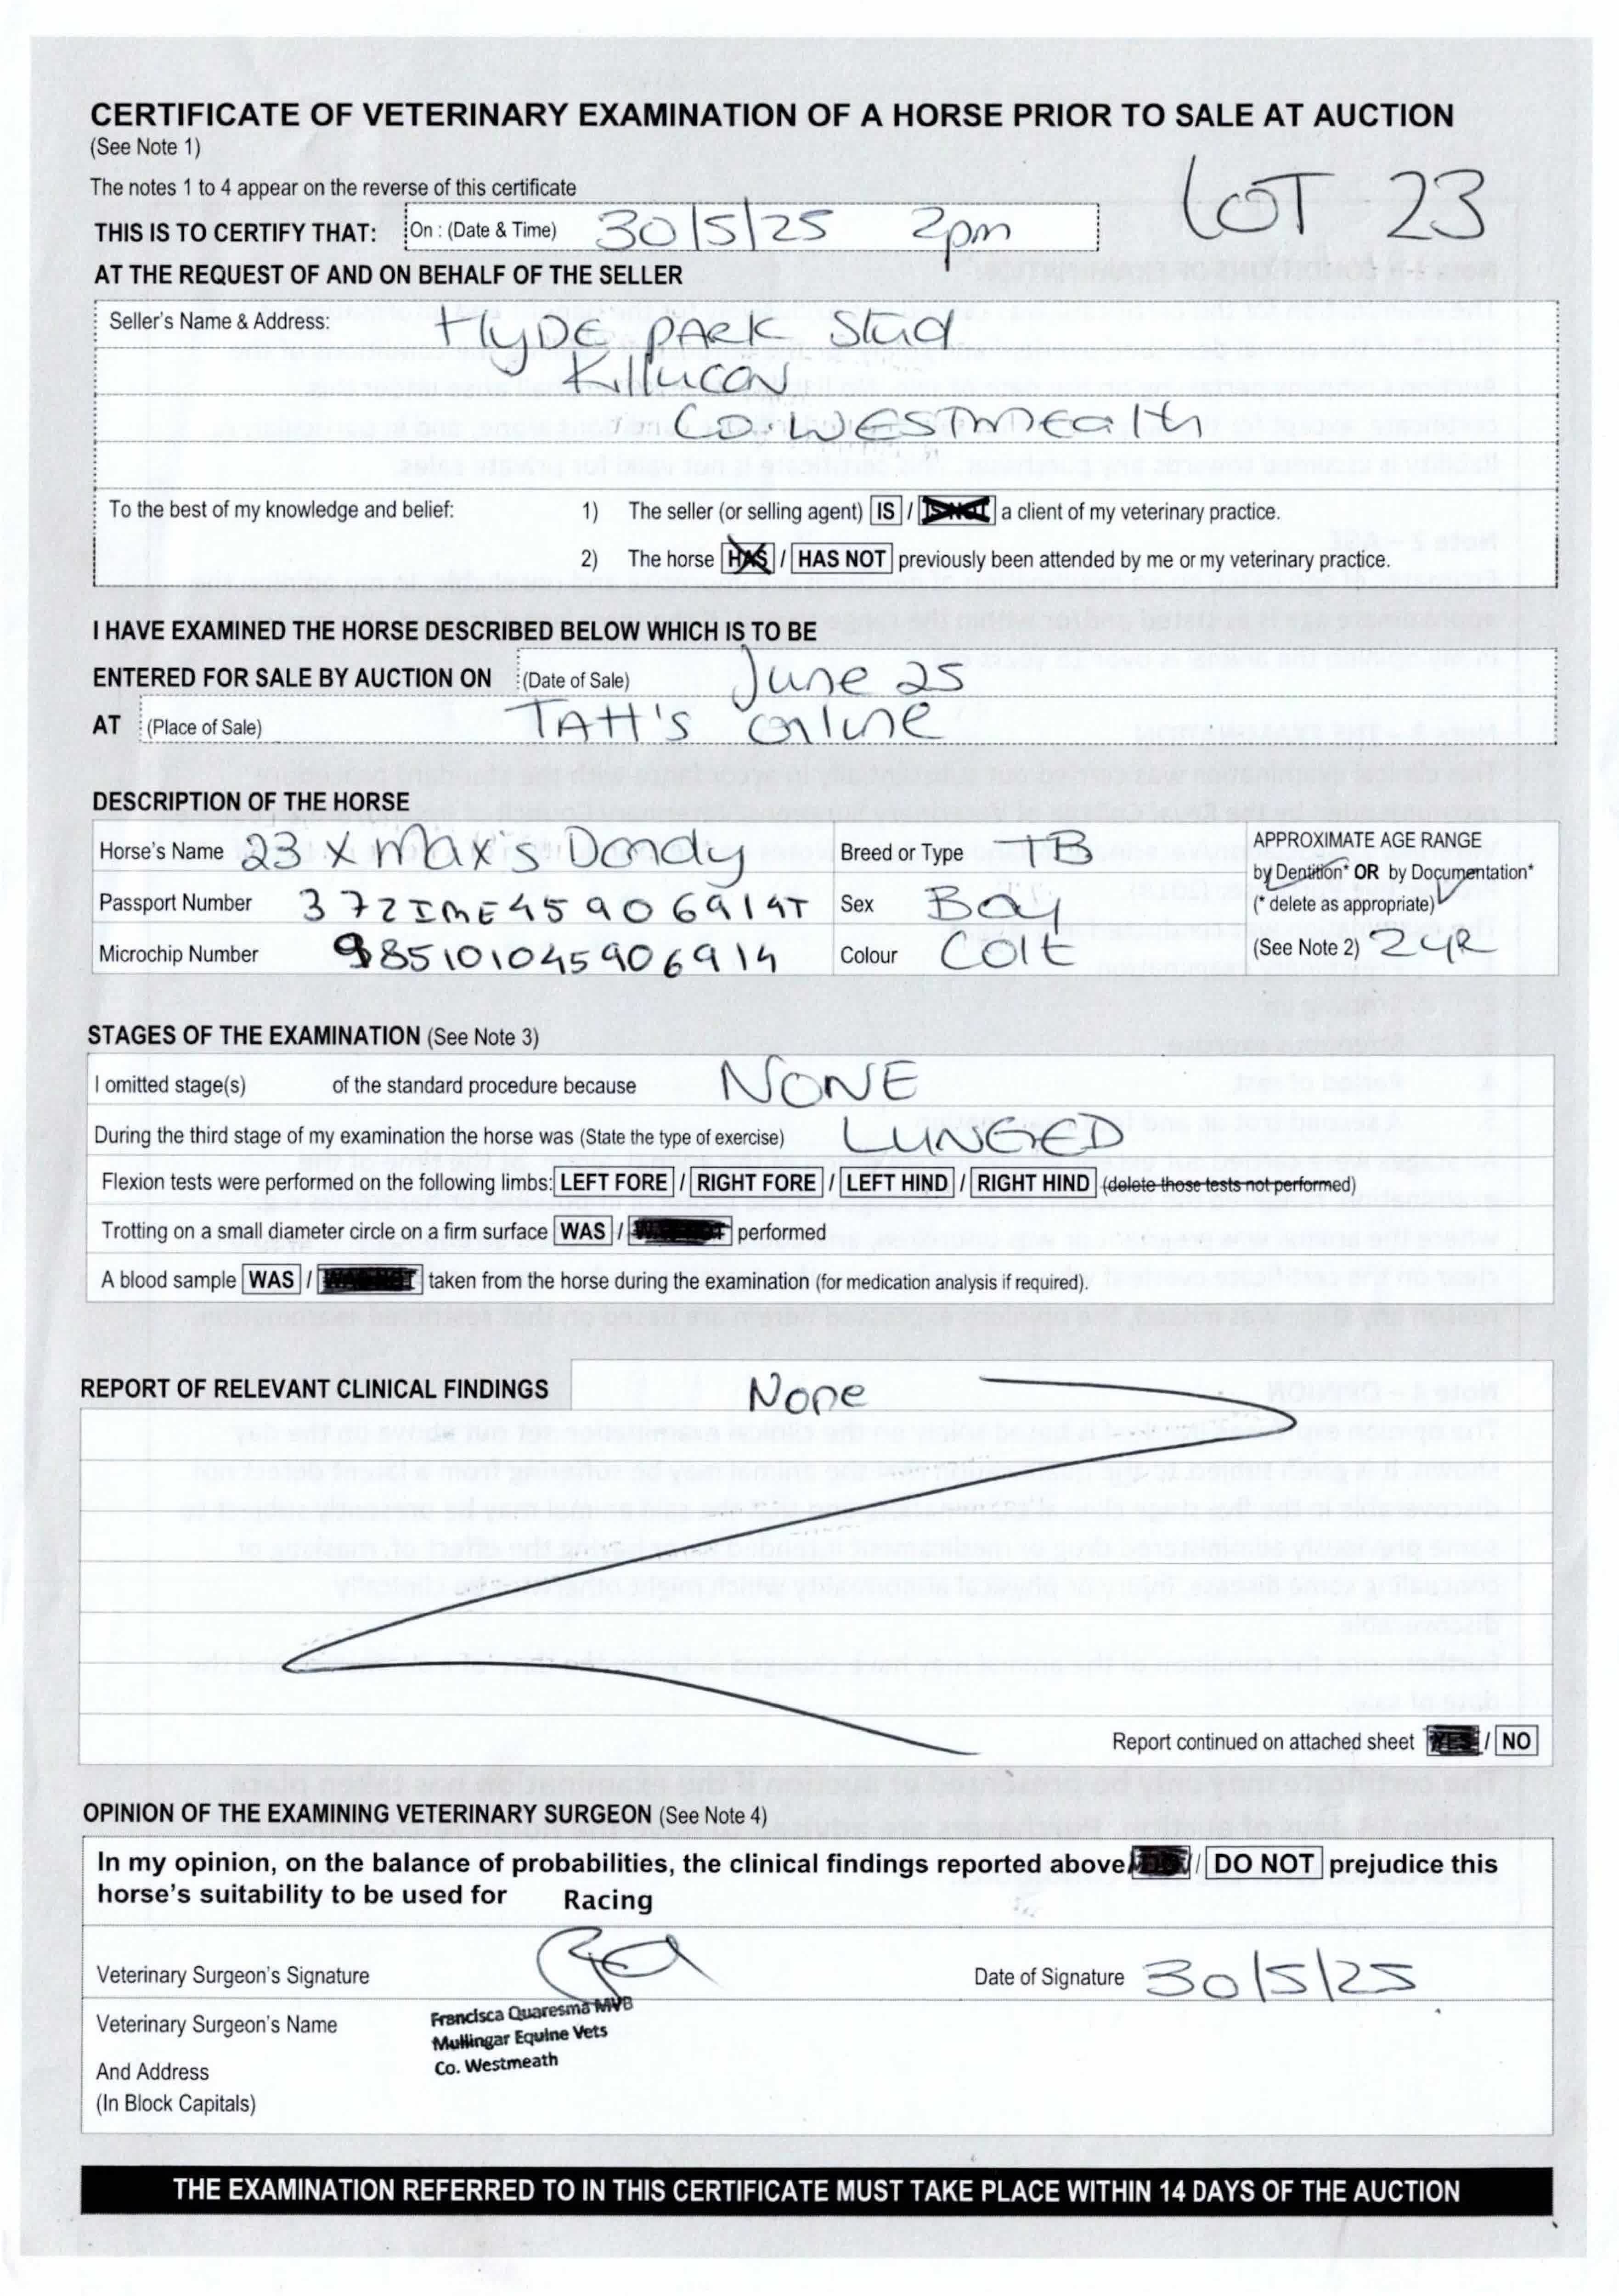 CERTIFICATE OF VETERINARY EXAMINATION OF A HORSE PRIOR TO SALE AT AUCTION
(See Note 1)
LOT 23
The notes 1 to 4 appear on the reverse of this certificate
THIS IS TO CERTIFY THAT: On : (Date & Time) 30/5/25 2pm
AT THE REQUEST OF AND ON BEHALF OF THE SELLER
Seller's Name & Address: HyDE PARK Stud
Killucan
Co. WESTMEath
To the best of my knowledge and belief: 1) The seller (or selling agent) IS / IS NOT a client of my veterinary practice.
2) The horse HAS / HAS NOT previously been attended by me or my veterinary practice.
I HAVE EXAMINED THE HORSE DESCRIBED BELOW WHICH IS TO BE
ENTERED FOR SALE BY AUCTION ON (Date of Sale) June 25
AT (Place of Sale) TAtt's online
DESCRIPTION OF THE HORSE
Horse's Name 23 x Max's Dandy Breed or Type TB APPROXIMATE AGE RANGE
by Dentition* OR by Documentation*
Passport Number 372IME45906914T Sex Bay (* delete as appropriate)
Microchip Number 985101045906914 Colour Colt (See Note 2) 2YR
STAGES OF THE EXAMINATION (See Note 3)
I omitted stage(s) of the standard procedure because NONE
During the third stage of my examination the horse was (State the type of exercise) LUNGED
Flexion tests were performed on the following limbs: LEFT FORE / RIGHT FORE / LEFT HIND / RIGHT HIND (delete those tests not performed)
Trotting on a small diameter circle on a firm surface WAS / performed
A blood sample WAS / taken from the horse during the examination (for medication analysis if required).
REPORT OF RELEVANT CLINICAL FINDINGS None
Report continued on attached sheet YES / NO
OPINION OF THE EXAMINING VETERINARY SURGEON (See Note 4)
In my opinion, on the balance of probabilities, the clinical findings reported above / DO NOT prejudice this
horse's suitability to be used for Racing
Veterinary Surgeon's Signature Date of Signature 30/5/25
Veterinary Surgeon's Name Francisca Quaresma MVB
Mullingar Equine Vets
And Address Co. Westmeath
(In Block Capitals)
THE EXAMINATION REFERRED TO IN THIS CERTIFICATE MUST TAKE PLACE WITHIN 14 DAYS OF THE AUCTION